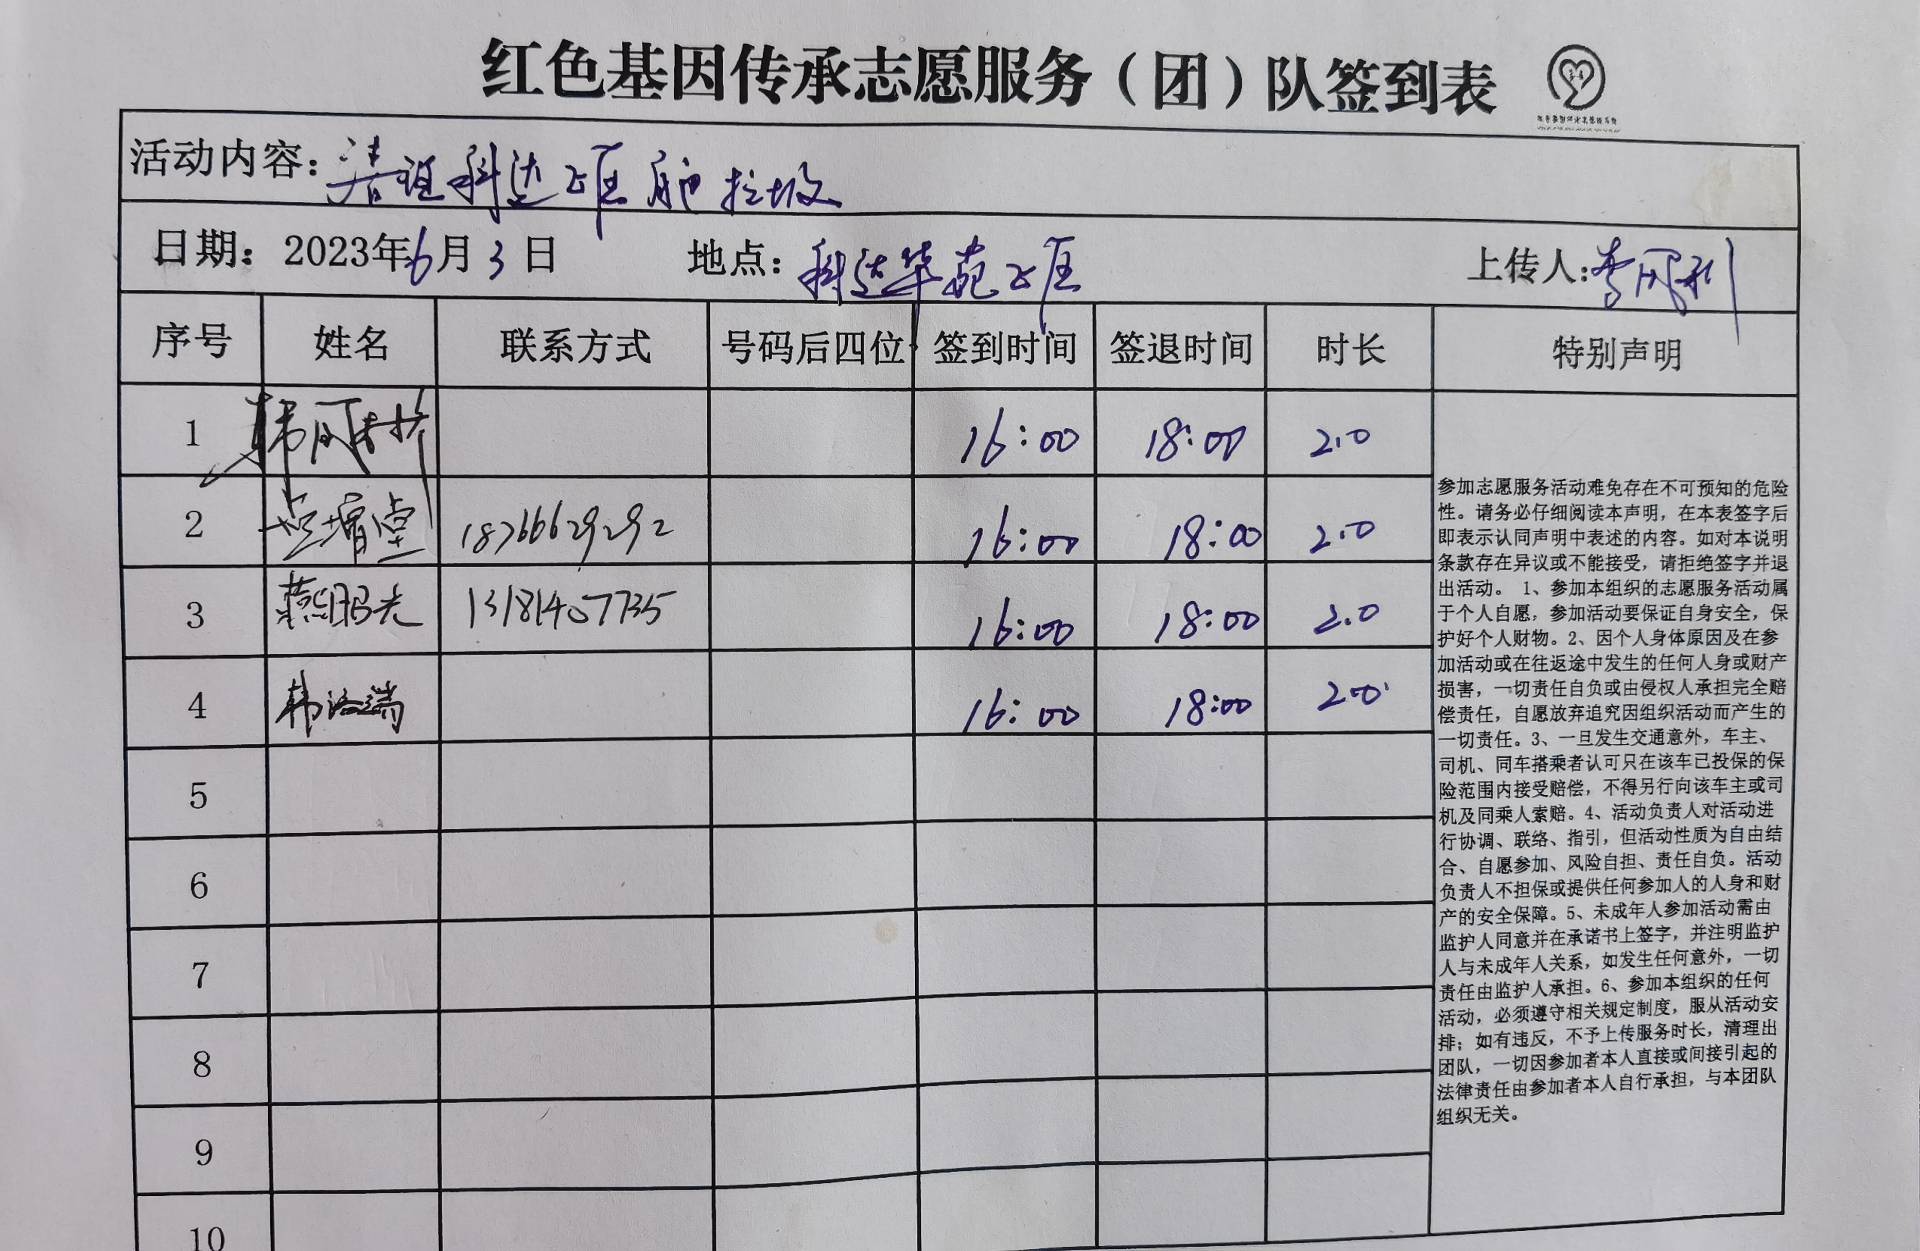 红色基因传承志愿服务（团）队签到表
活动内容：清理科达 垃圾
日期：2023年6月3日 地点：科达华苑 上传人：李
序号 姓名 联系方式 号码后四位 签到时间 签退时间 时长 特别声明
1 韩 16:00 18:00 2.0
2 18766629292 16:00 18:00 2.0
3 燕昭光 13181407735 16:00 18:00 2.0
4 韩洛端 16:00 18:00 2.0
5
6
7
8
9
10
参加志愿服务活动难免存在不可预知的危险
性。请务必仔细阅读本声明，在本表签字后
即表示认同声明中表述的内容。如对本说明
条款存在异议或不能接受，请拒绝签字并退
出活动。 1、参加本组织的志愿服务活动属
于个人自愿，参加活动要保证自身安全，保
护好个人财物。2、因个人身体原因及在参
加活动或在往返途中发生的任何人身或财产
损害，一切责任自负或由侵权人承担完全赔
偿责任，自愿放弃追究因组织活动而产生的
一切责任。3、一旦发生交通意外，车主、
司机、同车搭乘者认可只在该车已投保的保
险范围内接受赔偿，不得另行向该车主或司
机及同乘人索赔。4、活动负责人对活动进
行协调、联络、指引，但活动性质为自由结
合、自愿参加、风险自担、责任自负。活动
负责人不担保或提供任何参加人的人身和财
产的安全保障。5、未成年人参加活动需由
监护人同意并在承诺书上签字，并注明监护
人与未成年人关系，如发生任何意外，一切
责任由监护人承担。6、参加本组织的任何
活动，必须遵守相关规定制度，服从活动安
排；如有违反，不予上传服务时长，清理出
团队，一切因参加者本人直接或间接引起的
法律责任由参加者本人自行承担，与本团队
组织无关。